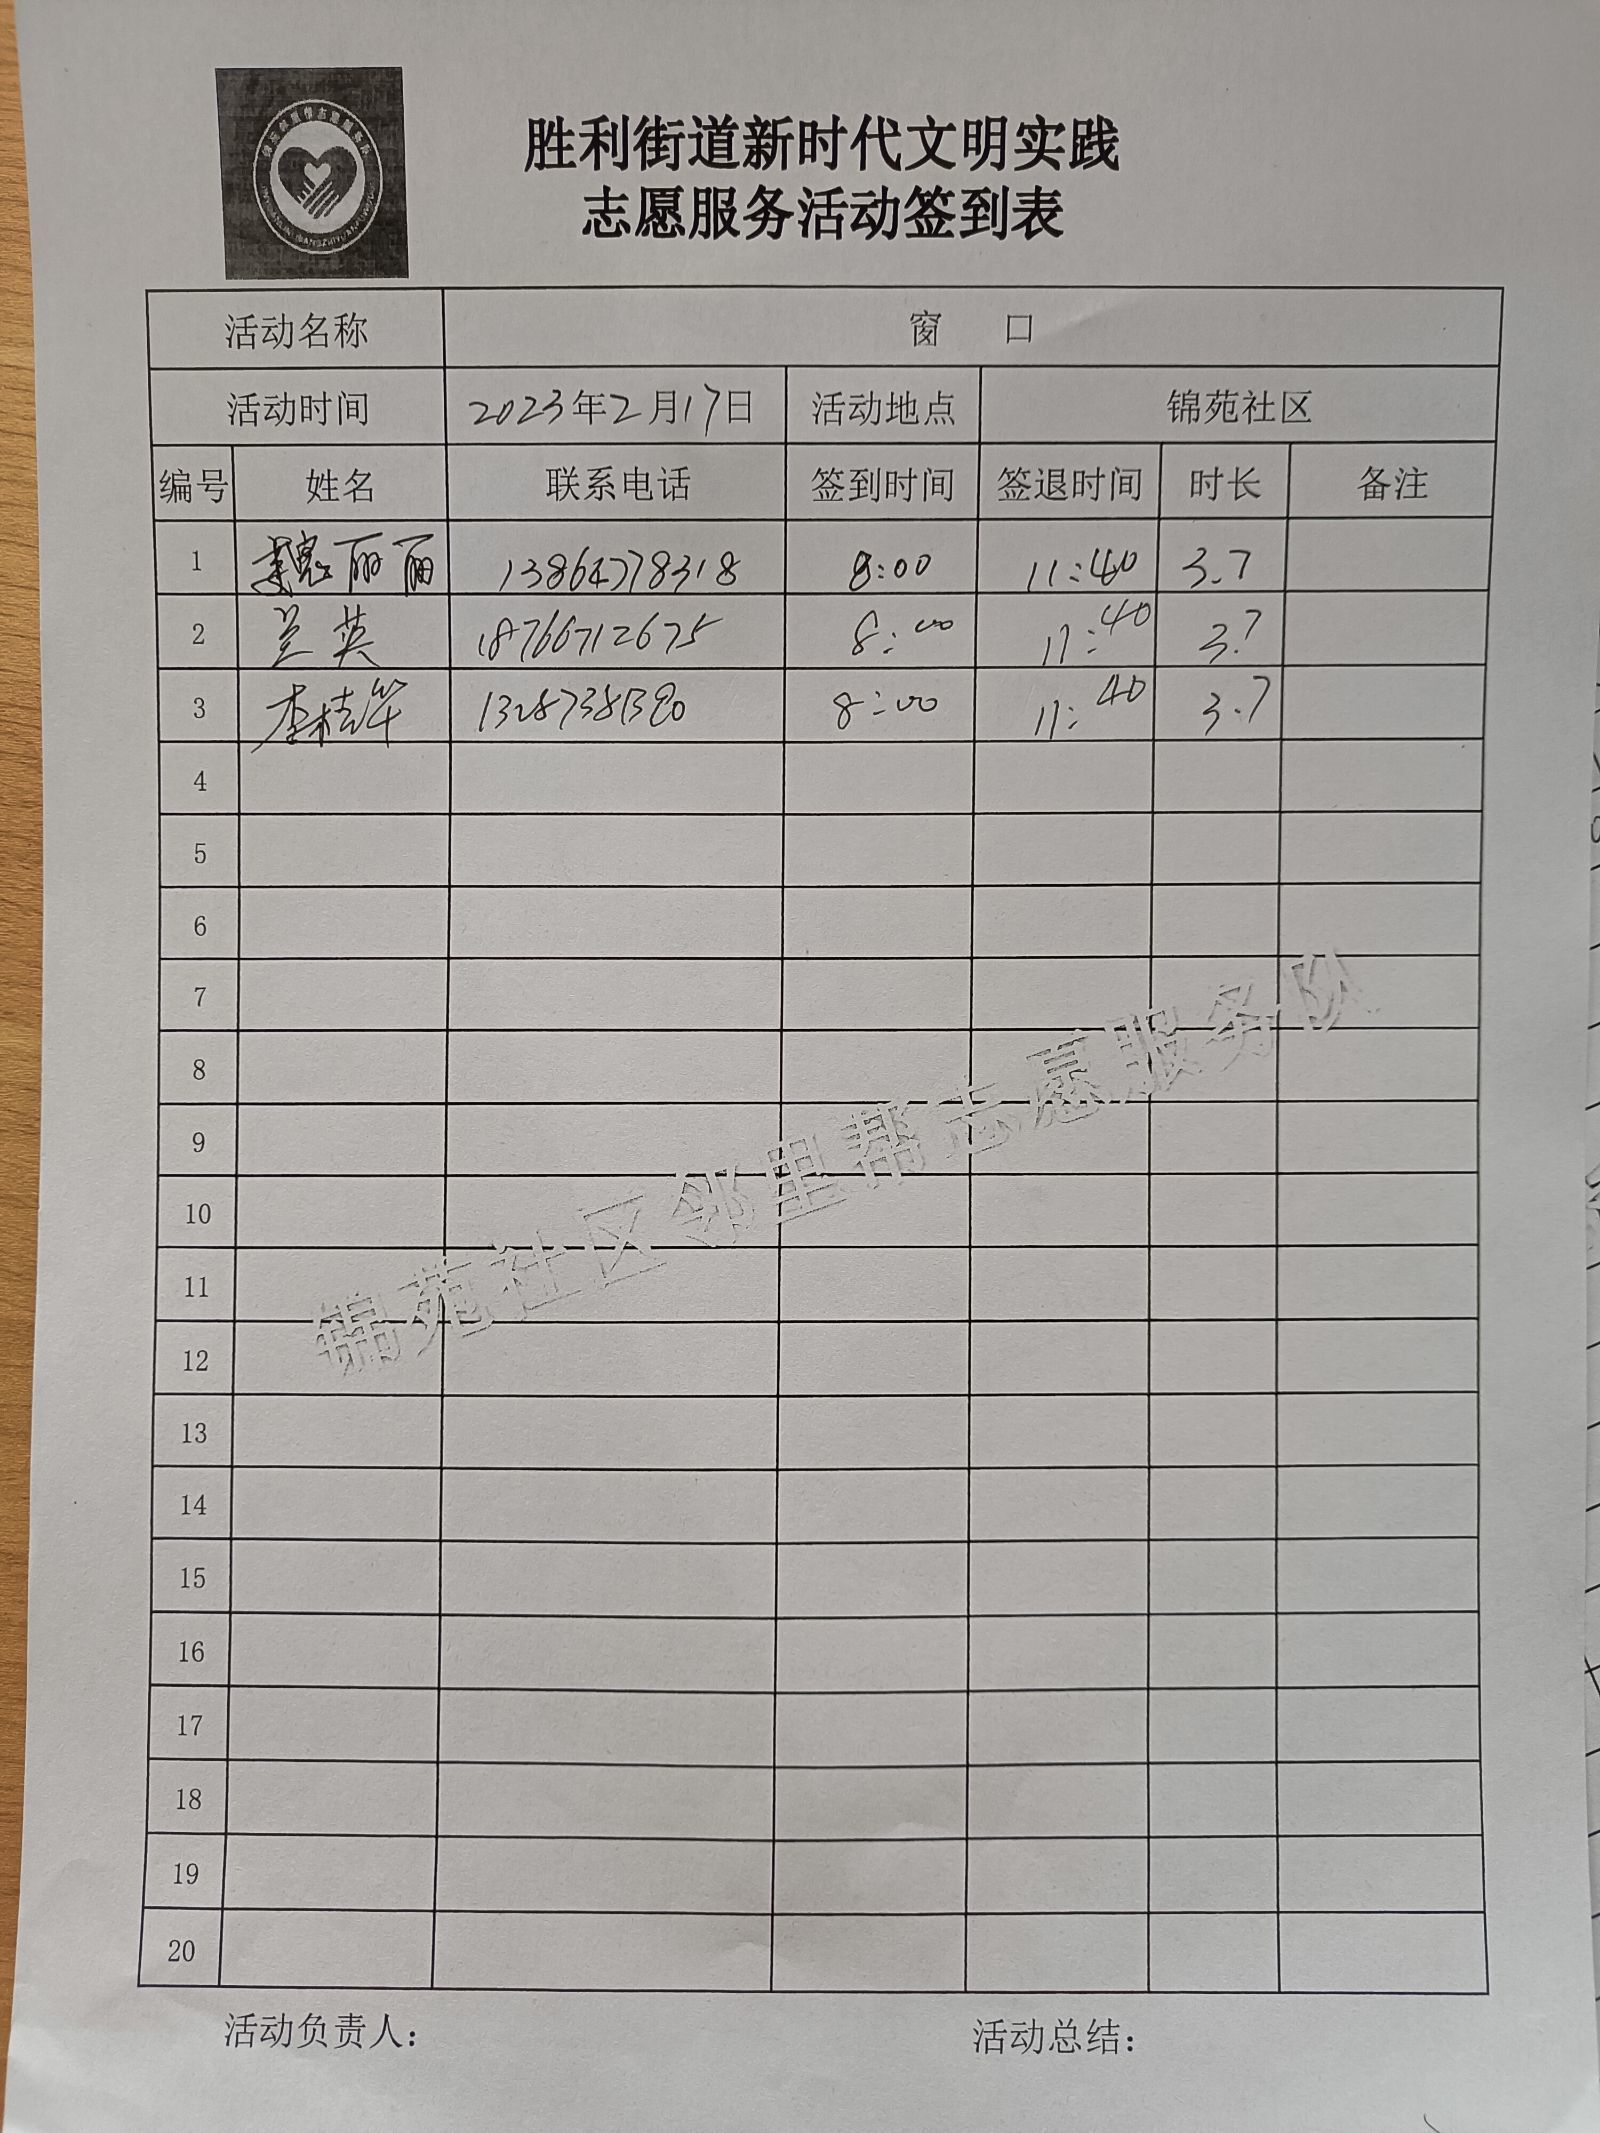 胜利街道新时代文明实践
志愿服务活动签到表
活动名称 窗 口
活动时间 2023年2月17日 活动地点 锦苑社区
编号 姓名 联系电话 签到时间 签退时间 时长 备注
1 魏丽丽 13864778318 8:00 11:40 3.7
2 兰英 18766712675 8:00 11:40 3.7
3 李桂华 8:00 11:40 3.7
4
5
6
7
8
9
10
11
12
13
14
15
16
17
18
19
20
锦苑社区邻里帮志愿服务队
活动负责人: 活动总结: